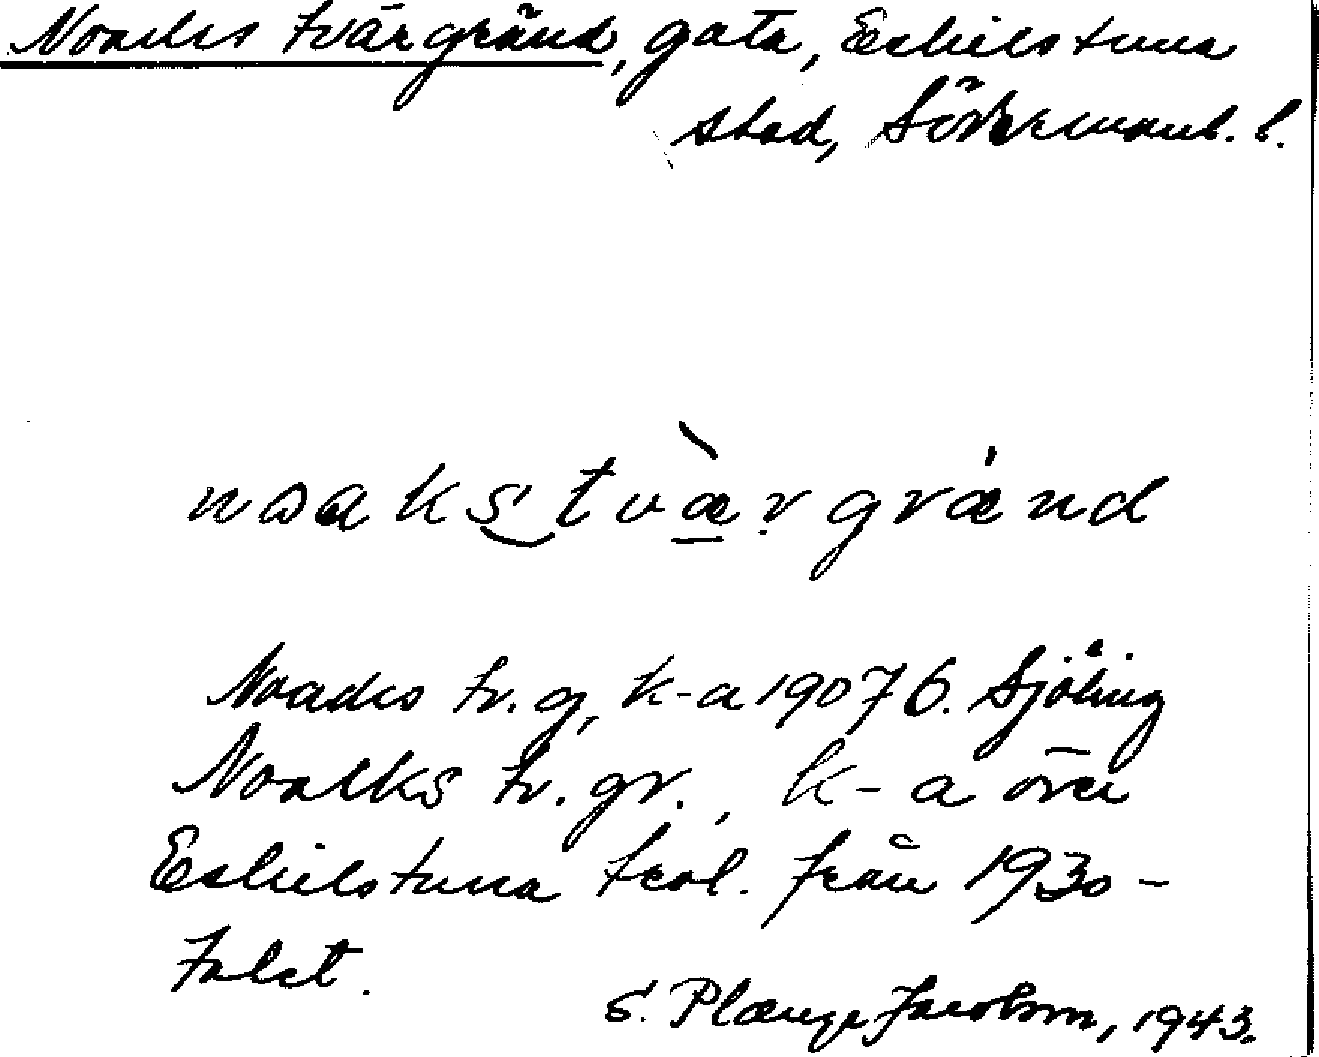 Noacks tvärgränd, gata, Eskilstuna
stad, Södermanl. l.
noaks tvæ̀r grǽnd
Noacks tv. g, k-a 1907 G. Sjöling
Noacks tv. gr., k-a över
Eskilstuna trol. från 1930-
talet.
S. Plænge Jacobson, 1943.